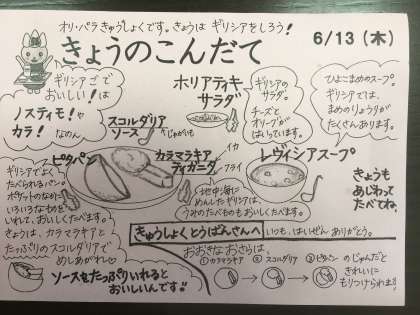 オリ・パラきゅうしょくです。きょうは ギリシアをしろう!
きょうのこんだて
6/13(木)
ギリシアごで
おいしい!は
ノスティモ!や
カラ! なのん
ホリアティキ
サラダ
ギリシアの
サラダ。
チーズと
オリーブが
はいています。
ひよこまめのスープ。
ギリシアでは、
まめのりょうりが
たくさんあります。
スコルダリア
ソース
じゃがいも
ピタパン
カラマラキア
ティガニタ
イカ
フライ
レヴィシアスープ
ギリシアでよく
たべられるパン。
ポケットのなかに
いろいろなものを
いれて、おいしくたべます。
きょうは、カラマラキアと
たっぷりのスコルダリアで
めしあがれ
ソースをたっぷりいれると
おいしいんです!!
地中海に
めんしたギリシアは、
うみのたべものもおいしくたべます。
きょうも
あじわって
たべてね。
きゅうしょくとうばんさんへ
いつも、はいぜん ありがとう。
おおきなおさらは、
①カラマラキア ②スコルダリア ③ピタパン のじゅんだと
きれいに
もりつけられます!!